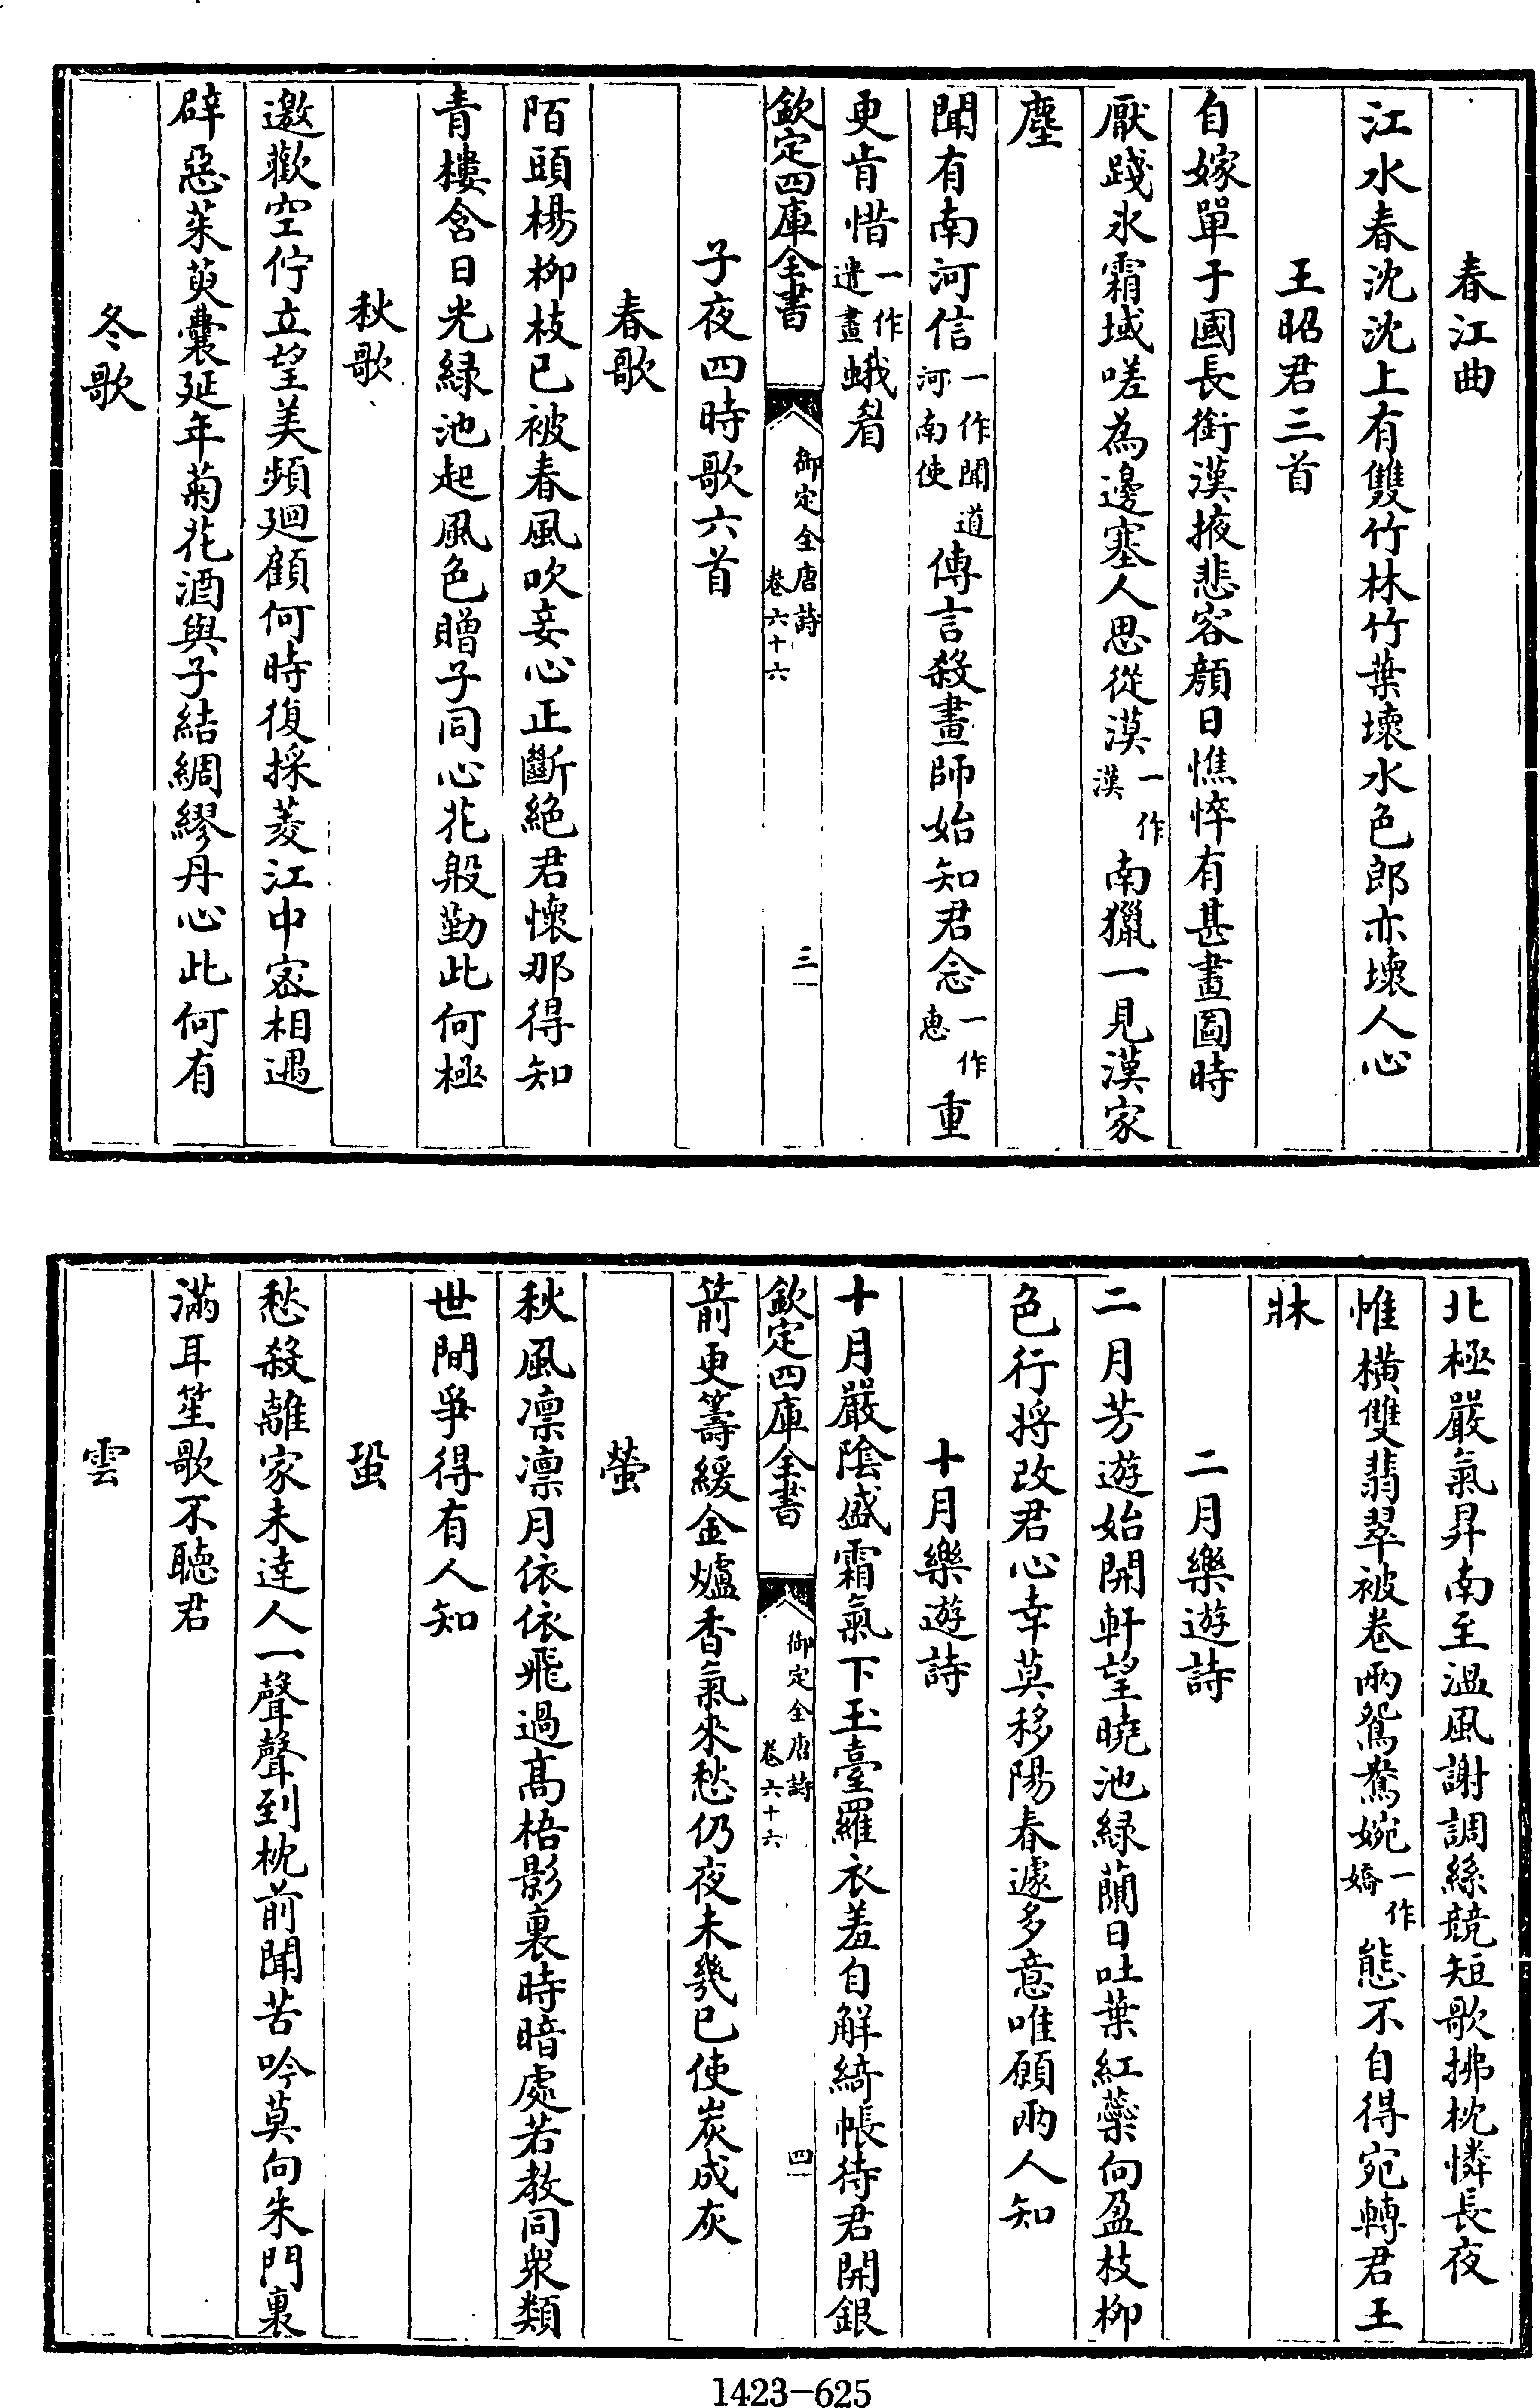 春江曲
江水春沈沈上有雙竹林竹葉壞水色郎亦壞人心
王昭君三首
自嫁單于國長銜漢掖悲容顏日憔悴有甚畫圖時
厭踐氷霜域嗟為邊塞人思從漠一作漢南獵一見漢家
塵
聞有南河信一作聞道河南使傳言殺畫師始知君念一作惠重
更肯惜一作遣畫蛾眉
欽定四庫全書 御定全唐詩卷六十六 三
子夜四時歌六首
春歌
陌頭楊柳枝已被春風吹妾心正斷絶君懷那得知
青樓含日光緑池起風色贈子同心花殷勤此何極
秋歌
邀歡空佇立望美頻廻顧何時復採菱江中宻相遇
辟惡茱萸囊延年菊花酒與子結綢繆丹心此何有
冬歌
北極嚴氣昇南至溫風謝調絲競短歌拂枕憐長夜
帷橫雙翡翠被卷兩鴛鴦婉一作嬌態不自得宛轉君王
牀
二月樂遊詩
二月芳遊始開軒望曉池緑蘭日吐葉紅蘂向盈枝柳
色行將改君心幸莫移陽春遽多意唯願兩人知
十月樂遊詩
十月嚴陰盛霜氣下玉臺羅衣羞自解綺帳待君開銀
欽定四庫全書 御定全唐詩卷六十六 四
箭更籌緩金爐香氣來愁仍夜未幾已使炭成灰
螢
秋風凛凛月依依飛過髙梧影裏時暗處若教同衆類
世間爭得有人知
蛩
愁殺離家未達人一聲聲到枕前聞苦吟莫向朱門裏
滿耳笙歌不聽君
雲
1423-625